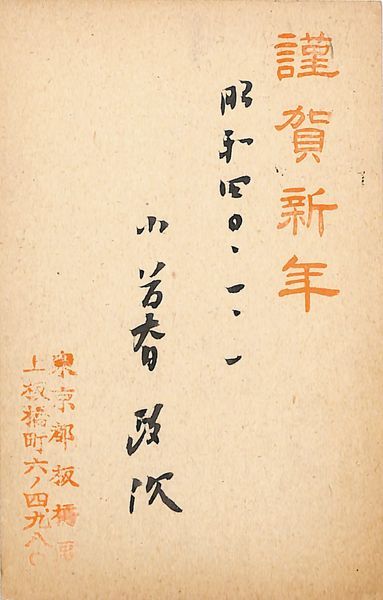 謹賀新年
昭和四〇・一・一
小 政次
東京都板橋区
上板橋町六ノ四九八